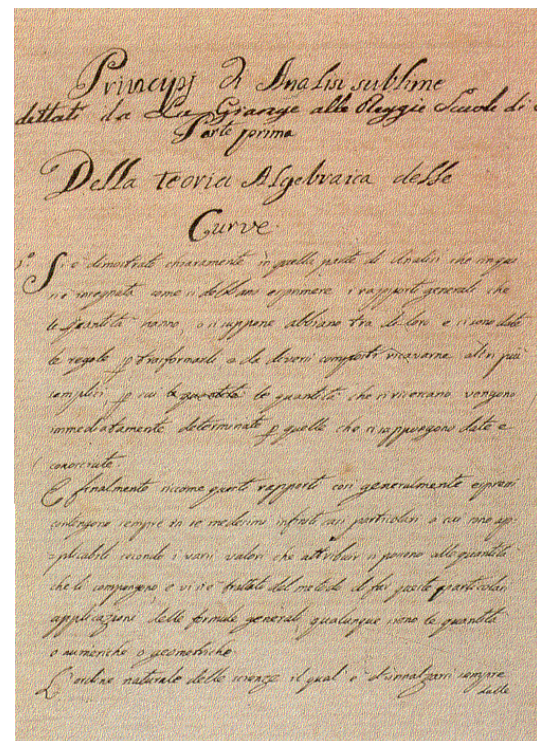 Principj di Analisi sublime
dettati da La Grange alle Reggie Scuole di
Parte prima
Della teoria Algebraica delle
Curve.
1º Si è dimostrato chiaramente in quella parte di Analisi che
si è insegnata come si debbano esprimere i rapporti generali che
le quantità hanno, o si suppone abbiano tra di loro e si sono date
le regole p trasformarli, o da diversi composti ricavarne altri più
semplici p cui le quantità che si ricercano vengono
immediatamente determinate p quelle che si suppongono date e
conosciute.
E finalmente siccome questi rapporti così generalmente espressi
contengono sempre in se medesimi infiniti casi particolari a cui sono ap-
plicabili secondo i varii valori che attribuir si possono alle quantità
che li compongono, e vi si è trattato del metodo di far queste particolari
applicazioni delle formule generali qualunque sieno le quantità
o numeriche o geometriche.
L'ordine naturale delle scienze il qual è d'innalzarsi sempre
dalle